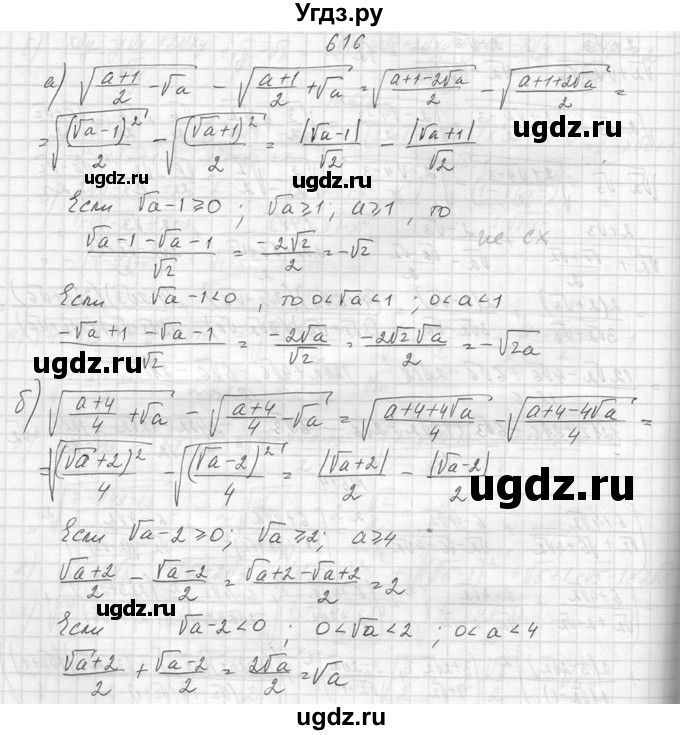 Угдз.ру
616
а) √((a+1)/2 − √a) − √((a+1)/2 + √a) = √((a+1−2√a)/2) − √((a+1+2√a)/2) =
= √((√a−1)²/2) − √((√a+1)²/2) = |√a−1|/√2 − |√a+1|/√2
ugdz.ru
ugdz.ru ugdz.ru
Если √a−1≥0 ; √a≥1; a≥1 , то
(√a−1−√a−1)/√2 = −2√2/2 = −√2
Если √a−1<0 , то 0<√a<1 ; 0<a<1
(−√a+1−√a−1)/√2 = −2√a/√2 = −2√2√a/2 = −√2a
ugdz.ru
ugdz.ru
б) √((a+4)/4 + √a) − √((a+4)/4 − √a) = √((a+4+4√a)/4) − √((a+4−4√a)/4) =
= √((√a+2)²/4) − √((√a−2)²/4) = |√a+2|/2 − |√a−2|/2
ugdz.ru
Если √a−2≥0; √a≥2; a≥4
(√a+2)/2 − (√a−2)/2 = (√a+2−√a+2)/2 = 2
ugdz.ru
Если √a−2<0 ; 0<√a<2 ; 0<a<4
(√a+2)/2 + (√a−2)/2 = 2√a/2 = √a
ugdz.ru
ugdz.ru